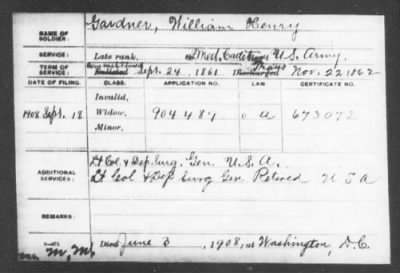 Gardner, William Henry
NAME OF SOLDIER:
SERVICE: Late rank, Med. Cadet U.S. Army.
TERM OF SERVICE: Enlisted Sept. 24, 1861 Discharged Nov. 22, 1862
DATE OF FILING. CLASS. APPLICATION NO. LAW. CERTIFICATE NO.
Invalid,
1908 Sept. 18 Widow, 904487 a 673072
Minor,
ADDITIONAL SERVICES: Lt Col. & Dep. Surg. Gen. U.S.A.
Lt Col & Dep Surg Gen Retired U S A
REMARKS:
Died June 3, 1908, at Washington, D.C.